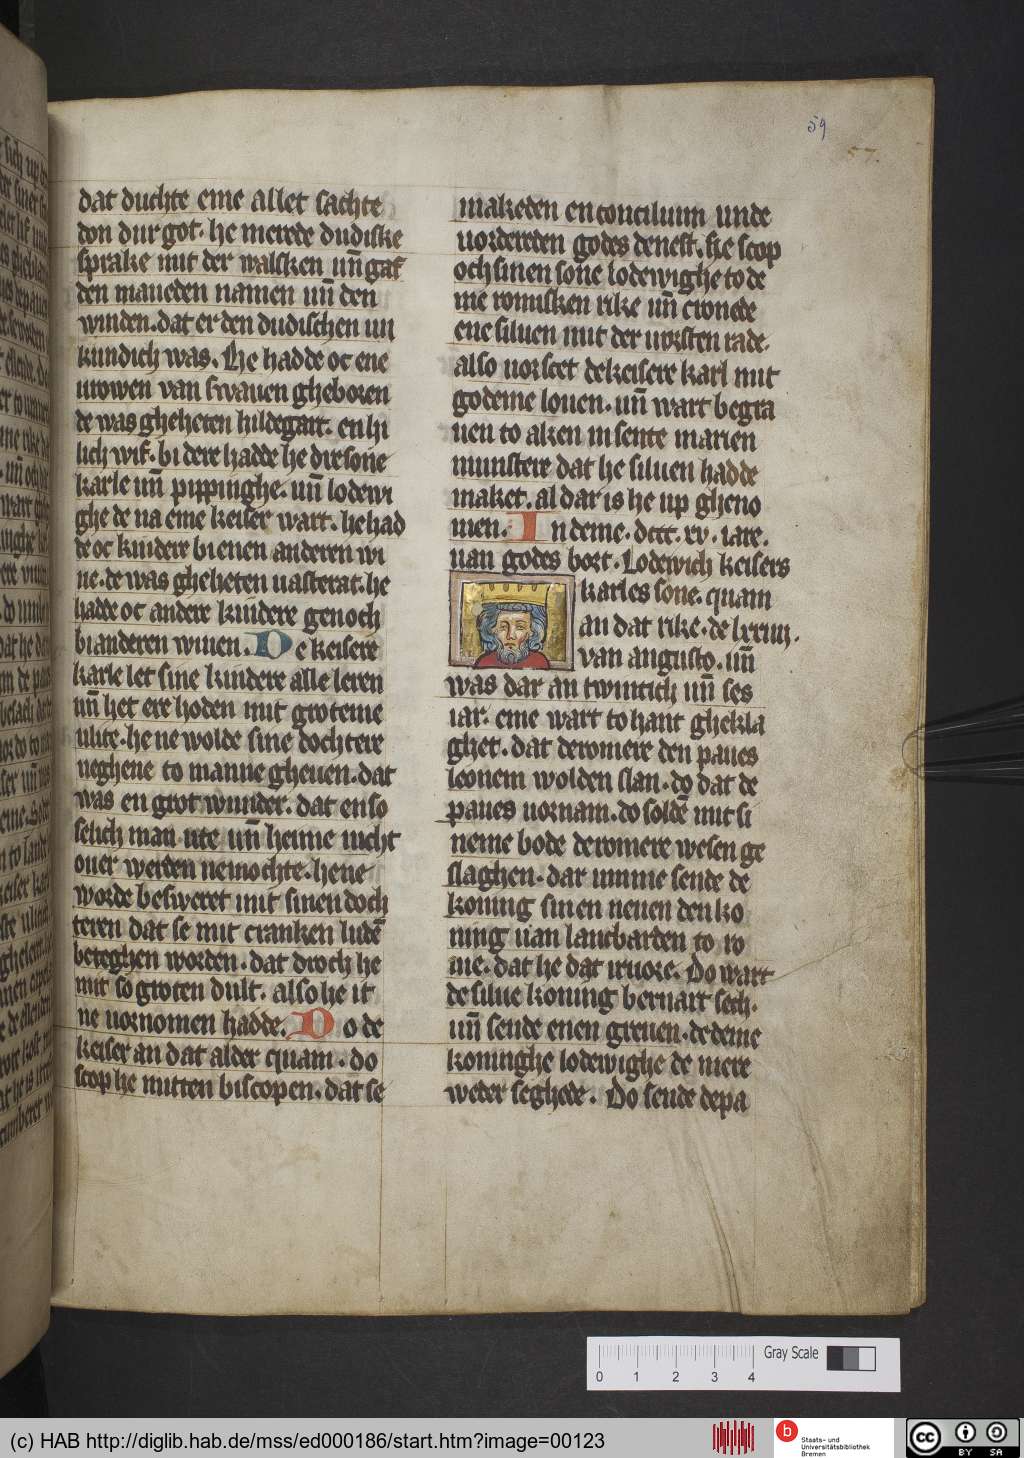 59
57.
dat duchte eme allet sachte
don dur got. he merede dudiske
sprake mit der walsken uñ gaf
den maneden namen uñ den
winden. dat er den dudischen un
kundich was. He hadde oc ene
urowen van swauen gheboren
de was gheheten hildegart. en hi
lich wif. bi dere hadde he dre sone
karle uñ pippinghe. uñ lodewi
ghe de na eme keiser wart. he had
de oc kindere bi enen anderen wi
ue. de was gheheten uasterat. he
hadde oc andere kindere genoch
bi anderen wiuen. De keisere
karle let sine kindere alle leren
uñ het ere hoden mit groteme
ulite. he ne wolde sine dochtere
neghene to manne gheuen. dat
was en grot wunder. dat en so
selich man ute uñ heime nicht
ouer werden ne mochte. he ne
worde besweret mit sinen doch
teren dat se mit cranken ludē
beteghen worden. dat droch he
mit so groten dult. also he it
ne uornomen hadde. Do de
keiser an dat alder quam. do
scop he mitten biscopen. dat se
makeden en concilium unde
uorderden godes denest. he scop
och sinen sone lodewighe to de
me romisken rike uñ cronede
ene siluen mit der uorsten rade.
also uorscet de keisere karl mit
godeme louen. uñ wart begra
uen to aken in sente marien
munstere dat he siluen hadde
maket. al dar is he up gheno
men. In deme. dccc. xv. iare.
uan godes bort. Lodewich keisers
karles sone. quam
an dat rike. de lxxiiij.
van augusto. uñ
was dar an twintich uñ ses
iar. eme wart to hant ghekla
ghet. dat de romere den paues
leonem wolden slan. do dat de
paues uornam. do soldē mit si
neme bode de romere wesen ge
slaghen. dar umme sende de
koning sinen neuen den ko
ning uan lancbarden to ro
me. dat he dat iruore. Do wart
de silue koning bernart sech.
uñ sende enen greuen. de deme
koninghe lodewighe de mere
weder seghede. Do sende de pa
Gray Scale
0 1 2 3 4
(c) HAB http://diglib.hab.de/mss/ed000186/start.htm?image=00123
b
Staats- und
Universitätsbibliothek
Bremen
cc
BY SA